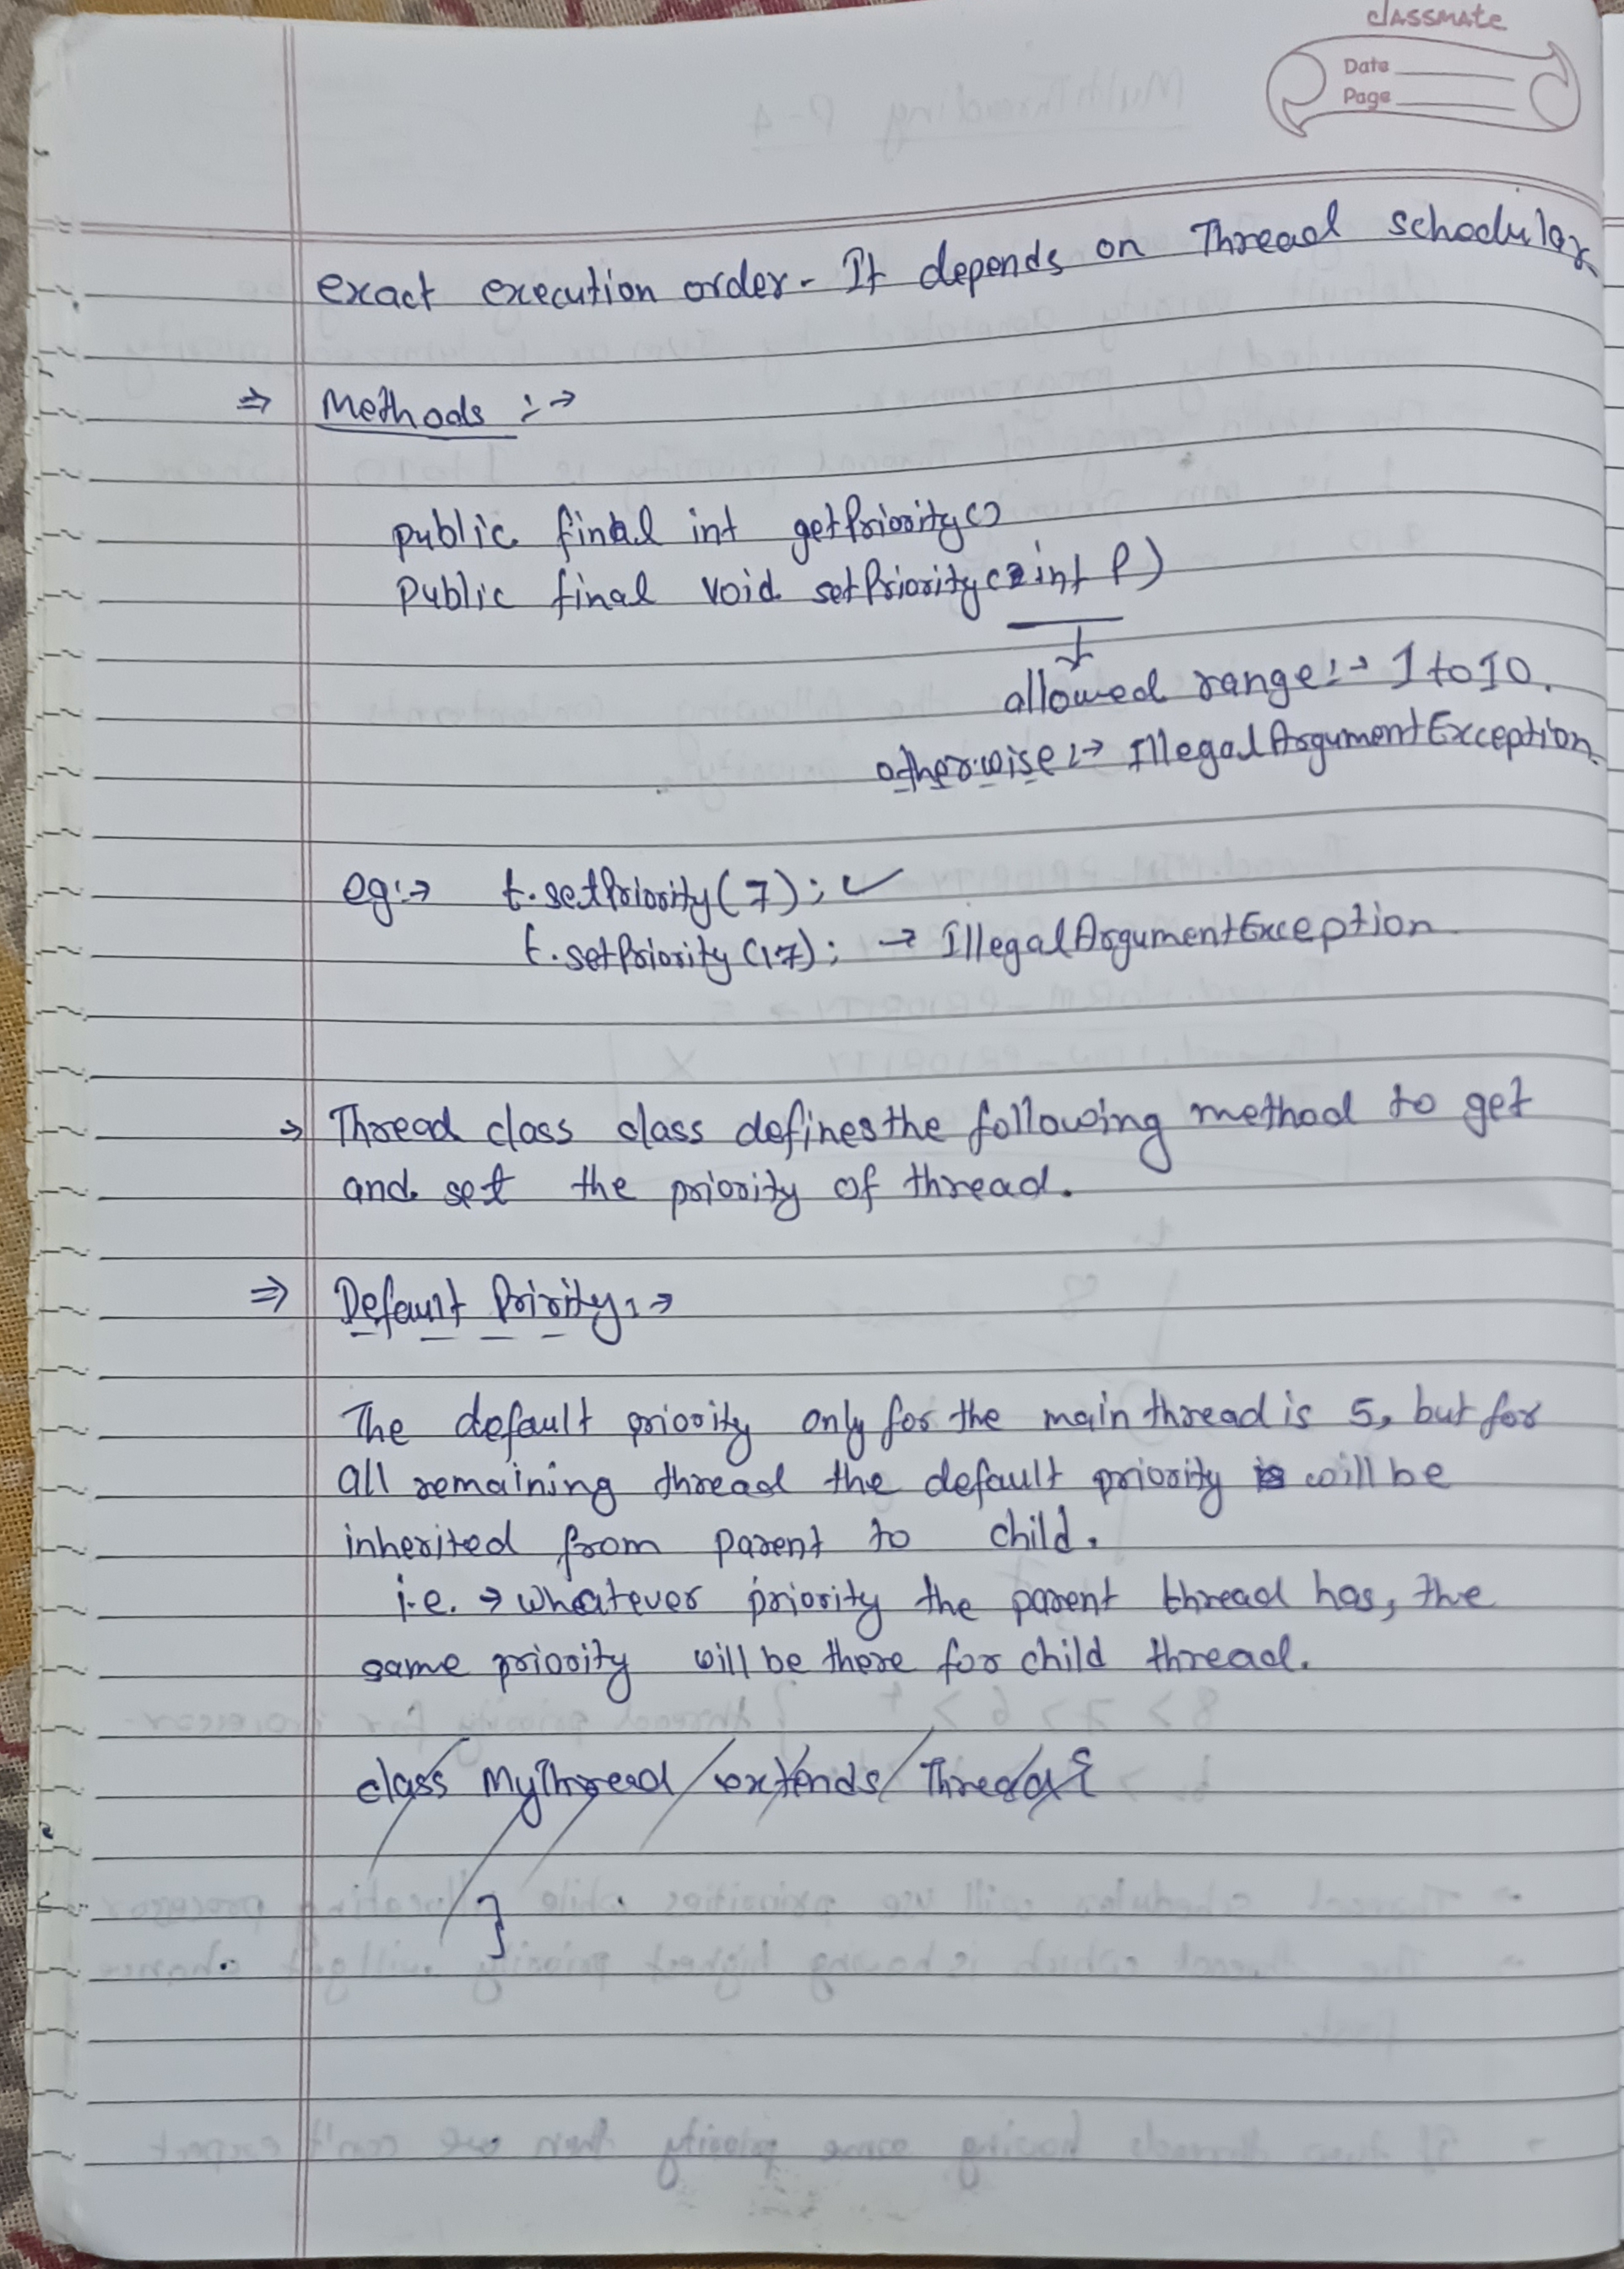 classmate
Date
Page
exact execution order- It depends on Thread schedular
⇒ Methods :→
public final int getPriority()
Public final void setPriority(int P)
allowed range:→ 1 to 10.
otherwise:→ IllegalArgumentException.
eg:→ t.setPriority(7); ✓
t.setPriority(17); → IllegalArgumentException
→ Thread class class defines the following method to get
and set the priority of thread.
⇒ Default Pririty:→
The default priority only for the main thread is 5, but for
all remaining thread the default priority will be
inherited from parent to child.
i.e. → whatever priority the parent thread has, the
same priority will be there for child thread.
class MyThread extends Thread {
}